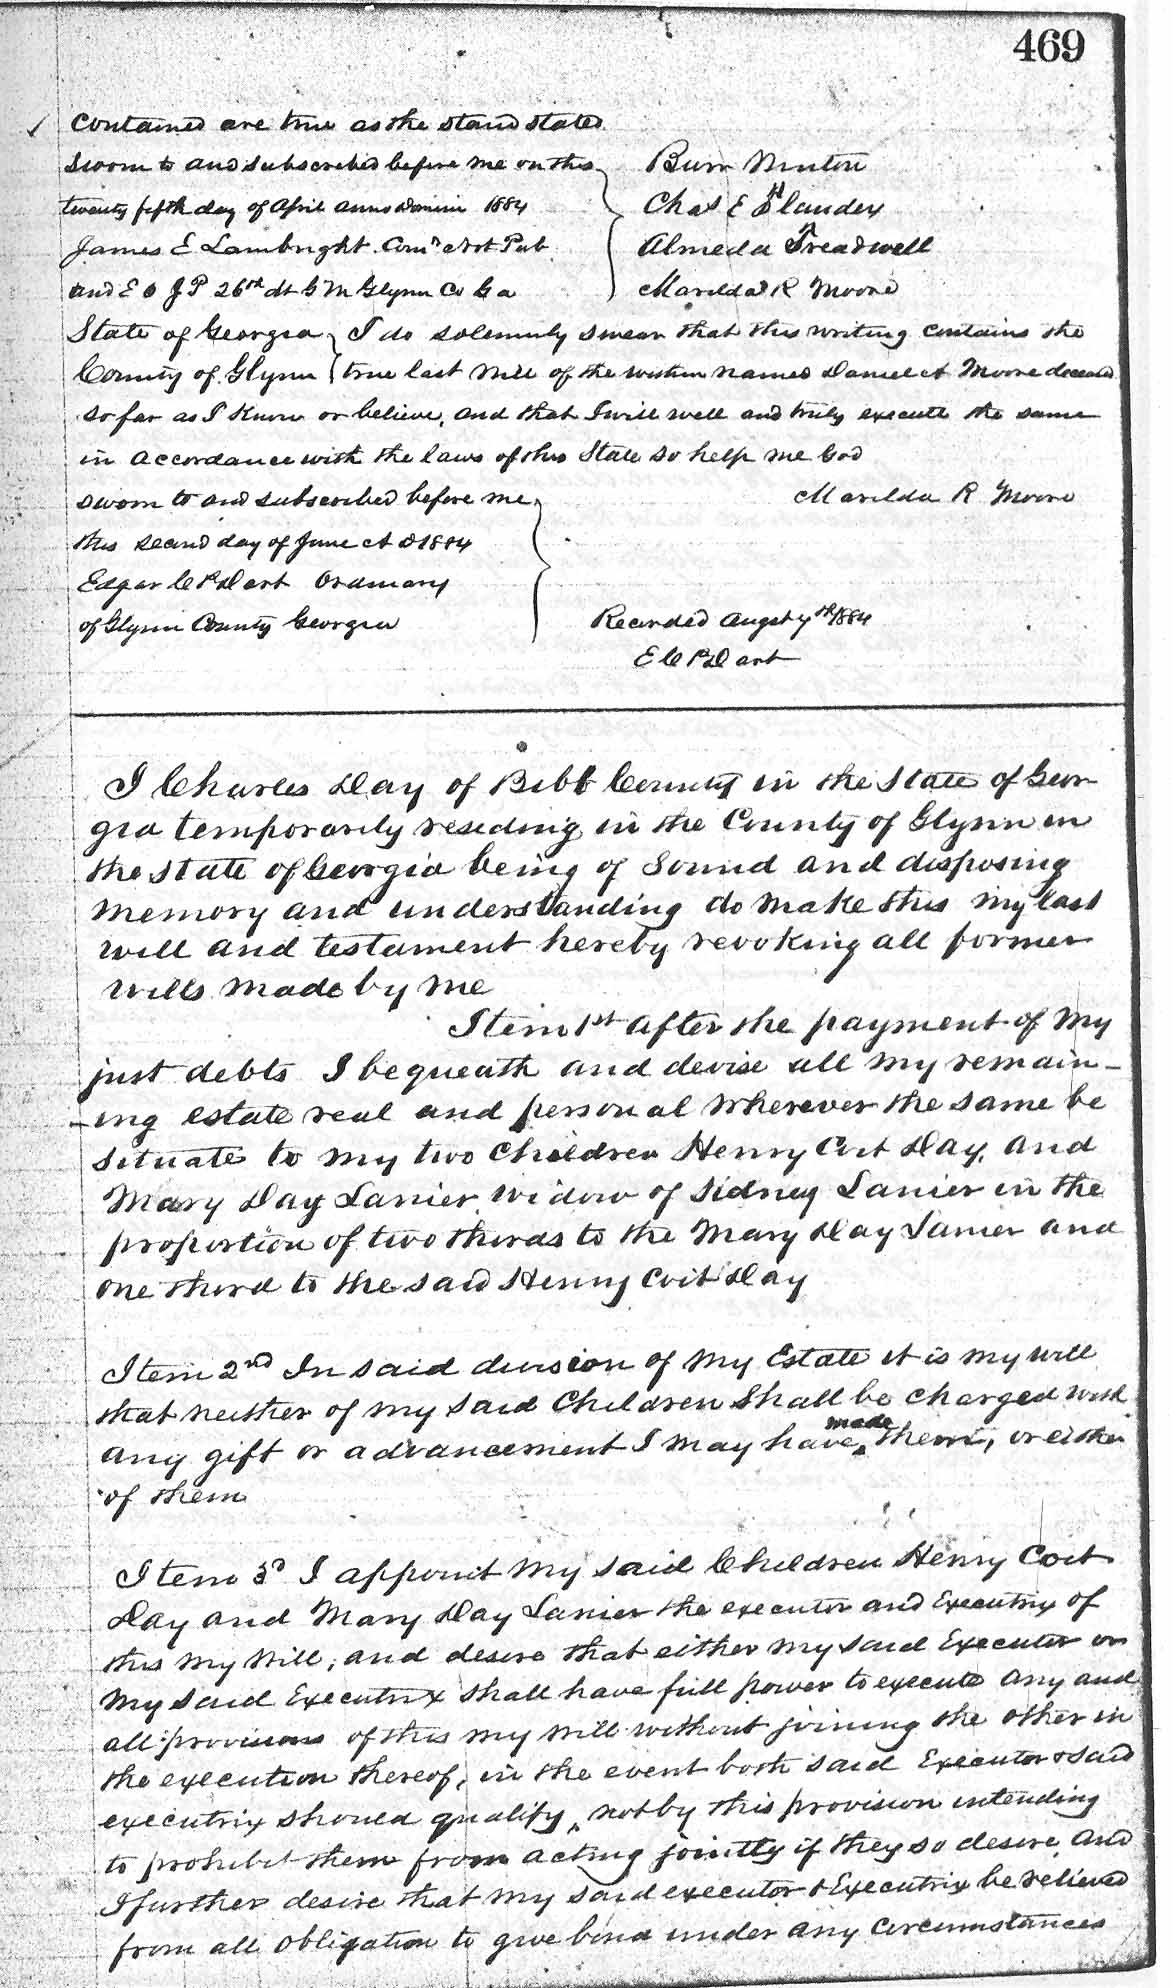 469
contained are true as the stand stated
sworn to and subscribed before me on this
twenty fifth day of April anno Domini 1884
James E Lambright Comr Not Pub
and E O J P 26th dt G M Glynn Co Ga
Burr Winton
Chas E Flanders
Almeda Treadwell
Marilda R Moore
State of Georgia } I do solemnly swear that this writing contains the
County of Glynn } true last Will of the within named Daniel A Moore deceased
so far as I know or believe, and that I will well and truly execute the same
in accordance with the laws of this State so help me God
sworn to and subscribed before me
Marilda R Moore
this second day of June A D 1884
Edgar C P Dart Ordinary
of Glynn County Georgia
Recorded Augst 7th 1884
E C P Dart
I Charles Day of Bibb County in the State of Geor
gia temporarily residing in the County of Glynn in
the State of Georgia being of Sound and disposing
memory and understanding do make this my last
will and testament hereby revoking all former
wills made by me
Item 1st after the payment of my
just debts I bequeath and devise all my remain-
-ing estate real and personal wherever the same be
situate to my two Children Henry Coit Day, and
Mary Day Lanier widow of Sidney Lanier in the
proportion of two thirds to the Mary Day Lanier and
one third to the said Henry Coit Day
Item 2nd In said division of my Estate it is my will
that neither of my said Children Shall be charged with
any gift or advancement I may have made them, or either
of them
Item 3d I appoint my said Children Henry Coit
Day and Mary Day Lanier the executor and Executrix of
this my Will, and desire that either my said Executor or
my said Executrix shall have full power to execute any and
all provisions of this my Will without joining the other in
the execution thereof, in the event both said Executor & said
executrix should qualify, not by this provision intending
to prohibit them from acting jointly if they so desire, and
I further desire that my said executor & Executrix be relieved
from all obligation to give bond under any circumstances